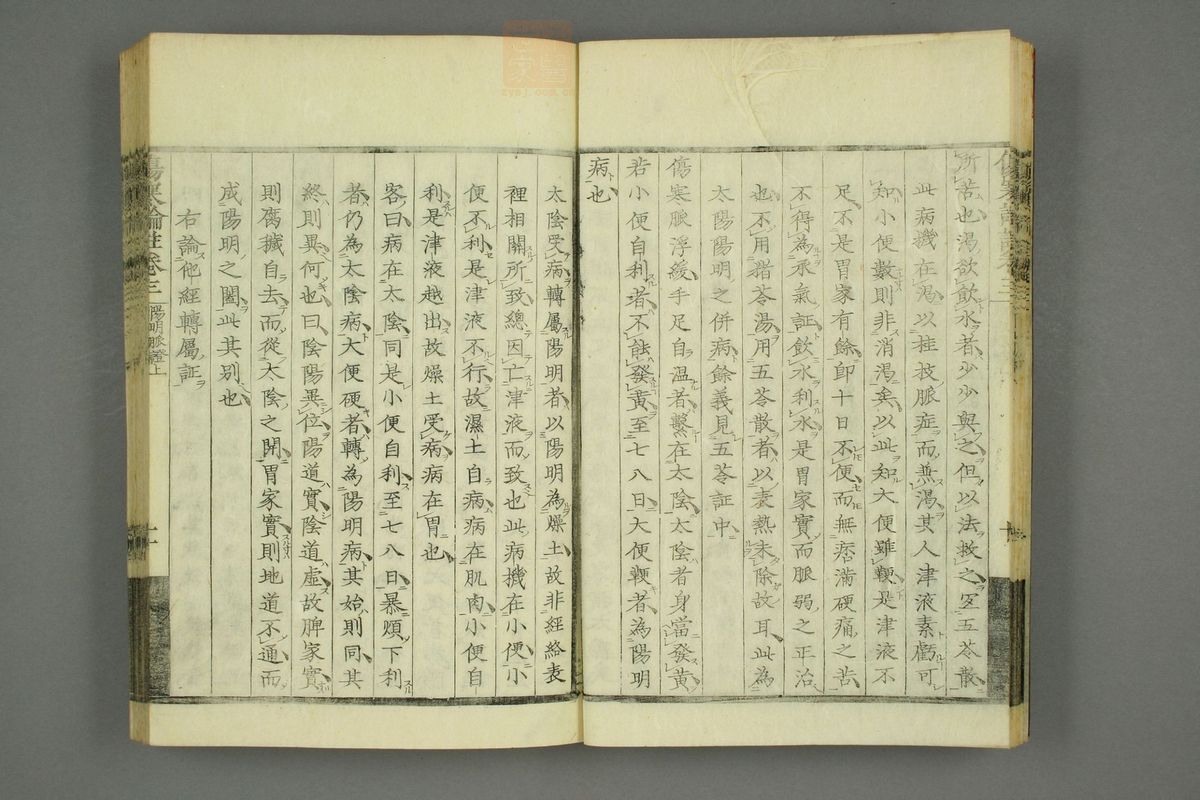 所苦也湯欲飲水者少少與之但以法救之宜五苓散
此病機在渴以桂枝脈症而無渴其人津液素虧可
知小便數則非消渴矣以此知大便雖鞕是津液不
足不是胃家有餘即十日不便而無痞滿硬痛之苦
不得為承氣証飲水利水是胃家實而脈弱之正治
也不用猪苓湯用五苓散者以表熱未除故耳此為
太陽陽明之併病餘義見五苓証中
傷寒脈浮緩手足自温者繫在太陰太陰者身當發黄
若小便自利者不能發黄至七八日大便鞕者為陽明
病也
太陰受病轉屬陽明者以陽明為燥土故非經絡表
裡相關所致總因亡津液而致也此病機在小便小
便不利是津液不行故濕土自病病在肌肉小便自
利是津液越出故燥土受病病在胃也
客曰病在太陰同是小便自利至七八日暴煩下利
者仍為太陰病大便硬者轉為陽明病其始則同其
終則異何也曰陰陽異位陽道實陰道虛故脾家實
則腐穢自去而從太陰之開胃家實則地道不通而
成陽明之闔此其別也
右論他經轉屬証
傷寒論註卷三
陽明脈證上